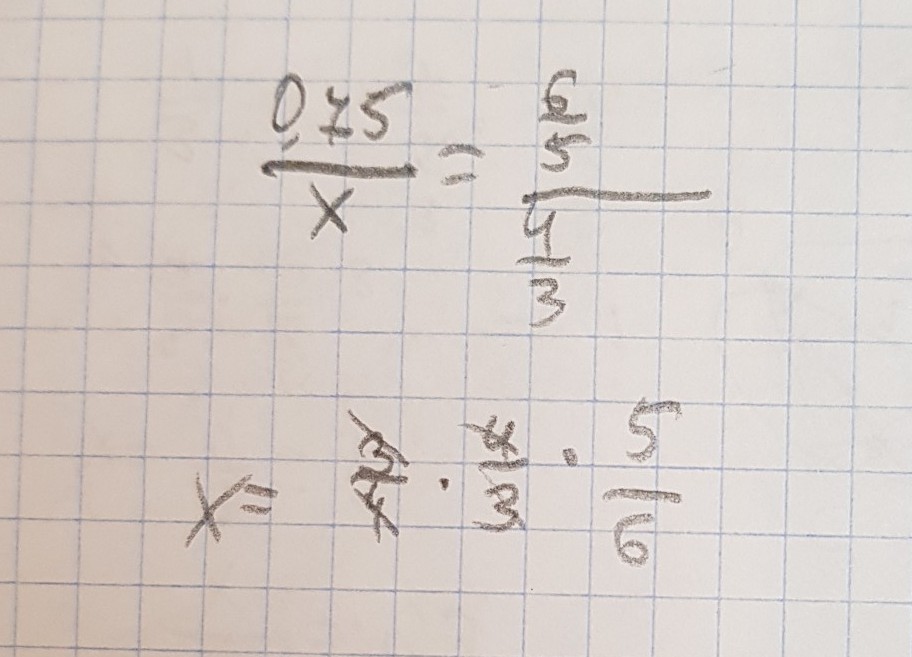 0,75/x = (6/5)/(4/3)
x = 3/4 · 4/3 · 5/6